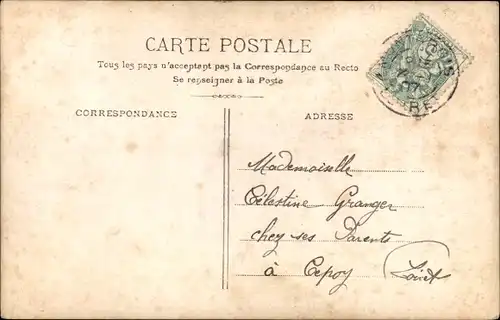 CARTE POSTALE
Tous les pays n'acceptent pas la Correspondance au Recto
Se renseigner à la Poste
CORRESPONDANCE
ADRESSE
Mademoiselle
Célestine Granger
chez ses Parents
à Cepoy (Loiret